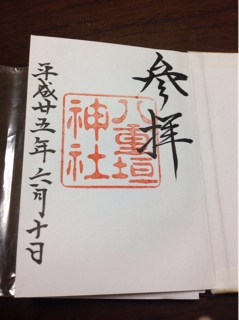 参拝
八重垣
神社
平成廿五年六月十日